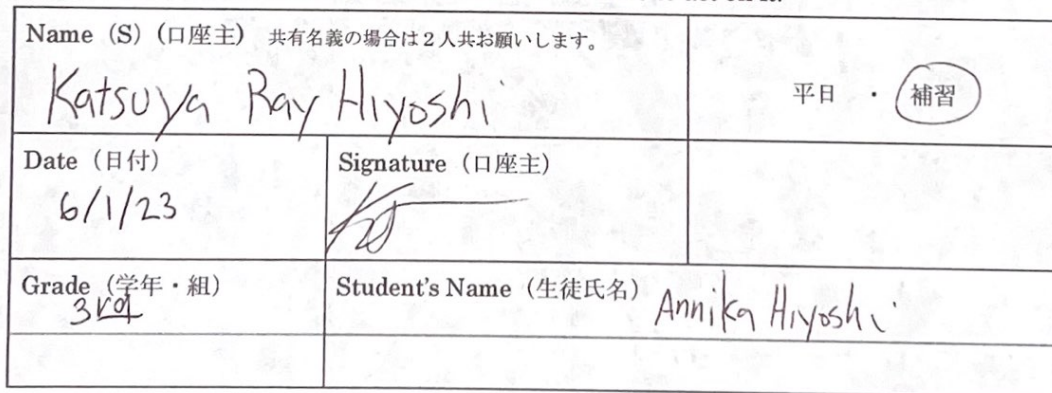 Name (S) (口座主) 共有名義の場合は２人共お願いします。
Katsuya Ray Hiyoshi
平日 ・ 補習
Date (日付)
6/1/23
Signature (口座主)
Grade (学年・組)
3rd
Student's Name (生徒氏名) Annika Hiyoshi